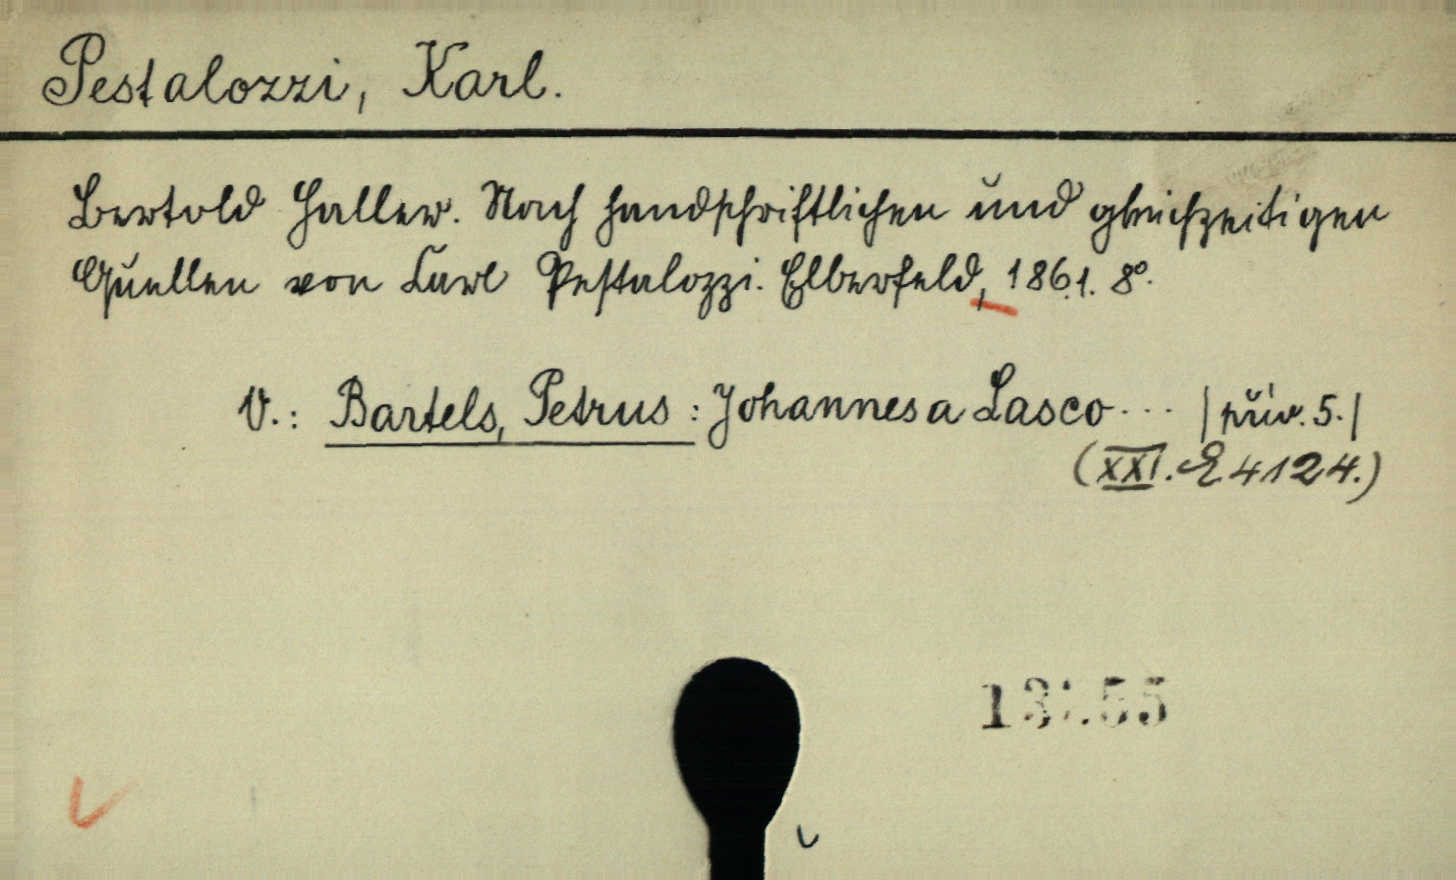 Pestalozzi, Karl.
Bertold Haller. Nach handschriftlichen und gleichzeitigen
Quellen von Carl Pestalozzi. Elberfeld, 1861. 8°.
V.: Bartels, Petrus: Johannes a Lasco... 5.
(XXI. E 4124.)